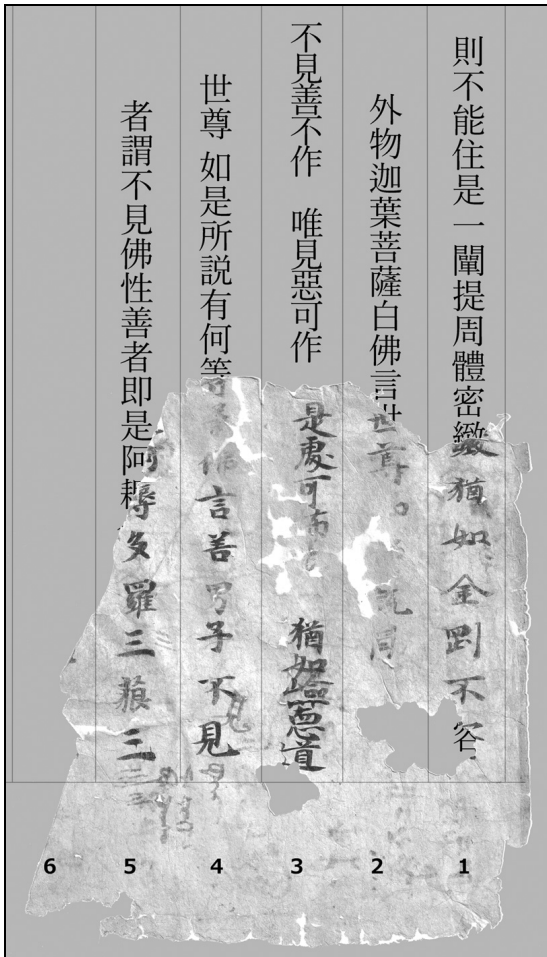 則不能住是一闡提周體密緻猶如金剛不容
外物迦葉菩薩白佛言世尊 説
不見善不作 唯見惡可作 是處可怖 猶如險惡道
世尊 如是所説有何等 佛言善男子不見
者謂不見佛性善者即是阿耨多羅三藐三
6 5 4 3 2 1